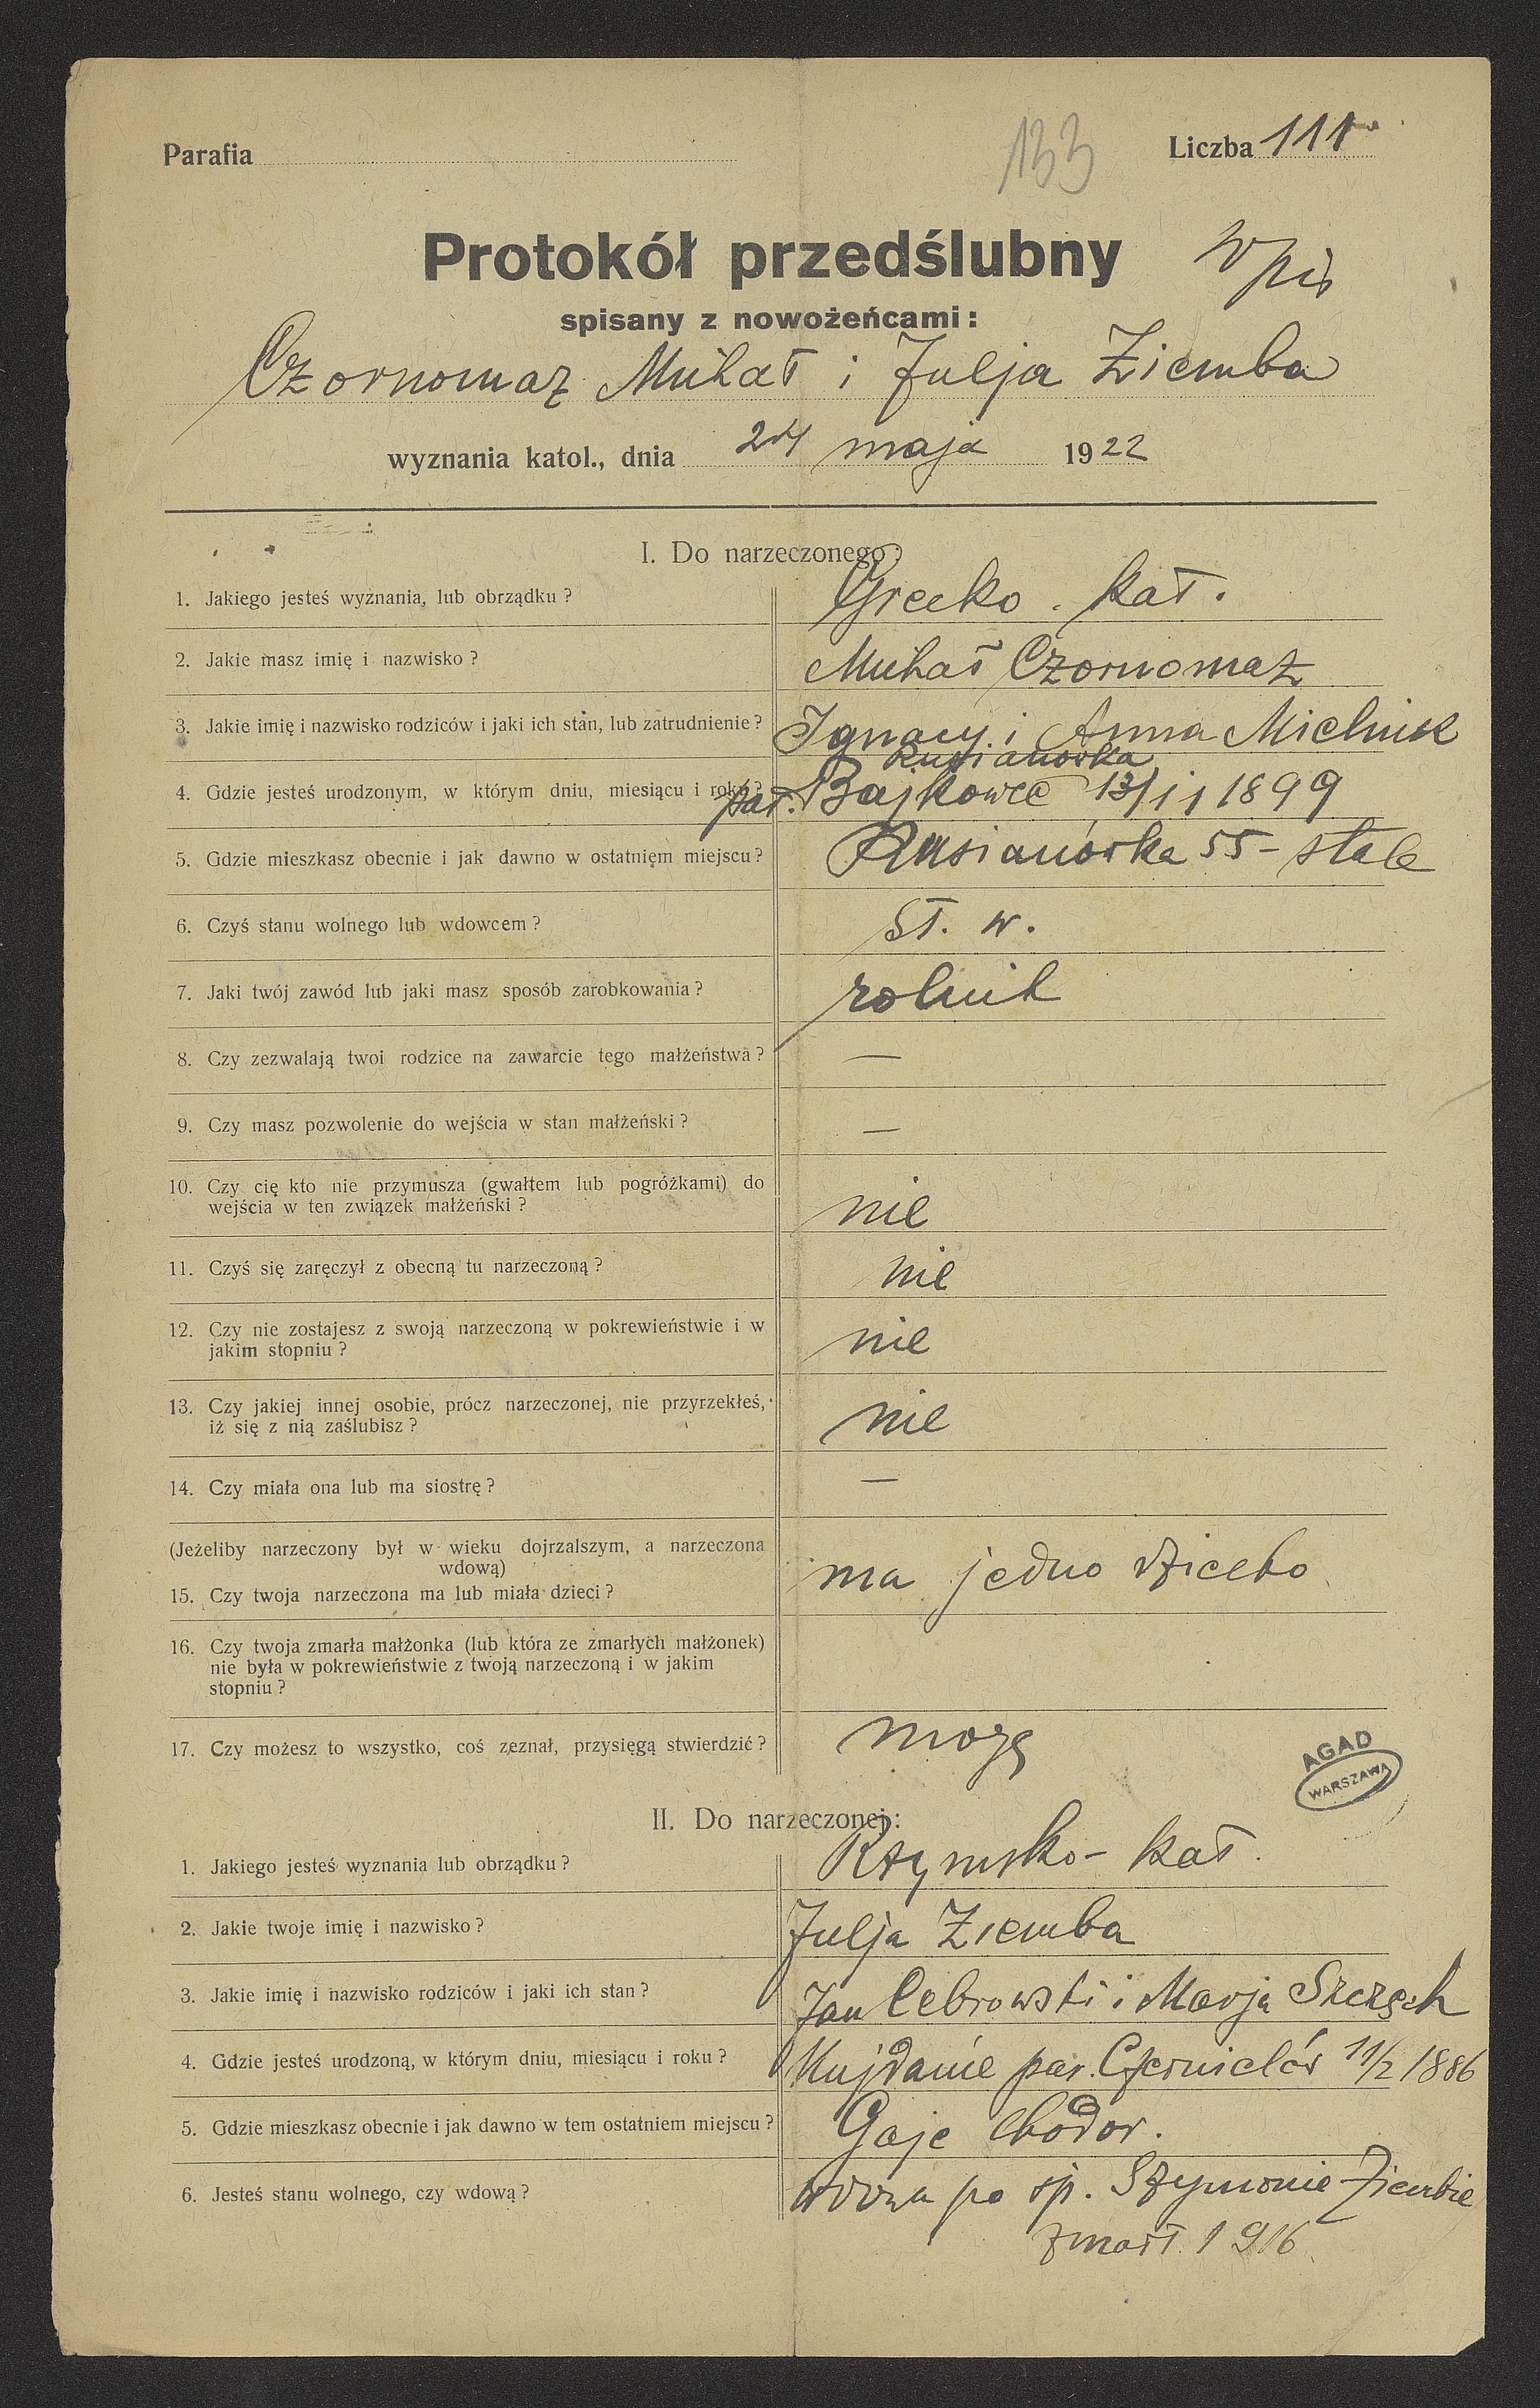 Parafia
133
Liczba 111
Protokół przedślubny
Wpis
spisany z nowożeńcami:
Czornomaz Michał i Julja Ziemba
wyznania katol., dnia 24 maja 1922
I. Do narzeczonego:
1. Jakiego jesteś wyznania, lub obrządku? Grecko. kat.
2. Jakie masz imię i nazwisko? Michał Czornomaz
3. Jakie imię i nazwisko rodziców i jaki ich stan, lub zatrudnienie? Ignacy i Anna Mielnik
Rusianówka
4. Gdzie jesteś urodzonym, w którym dniu, miesiącu i roku? par. Bajkowce 13/11 1899
5. Gdzie mieszkasz obecnie i jak dawno w ostatnięm miejscu? Rusianówka 55 - stale
6. Czyś stanu wolnego lub wdowcem? St. w.
7. Jaki twój zawód lub jaki masz sposób zarobkowania? rolnik
8. Czy zezwalają twoi rodzice na zawarcie tego małżeństwa? —
9. Czy masz pozwolenie do wejścia w stan małżeński? —
10. Czy cię kto nie przymusza (gwałtem lub pogróżkami) do
wejścia w ten związek małżeński? nie
11. Czyś się zaręczył z obecną tu narzeczoną? nie
12. Czy nie zostajesz z swoją narzeczoną w pokrewieństwie i w
jakim stopniu? nie
13. Czy jakiej innej osobie, prócz narzeczonej, nie przyrzekłeś,
iż się z nią zaślubisz? nie
14. Czy miała ona lub ma siostrę? —
(Jeżeliby narzeczony był w wieku dojrzalszym, a narzeczona
wdową)
15. Czy twoja narzeczona ma lub miała dzieci? ma jedno dziecko
16. Czy twoja zmarła małżonka (lub która ze zmarłych małżonek)
nie była w pokrewieństwie z twoją narzeczoną i w jakim
stopniu?
17. Czy możesz to wszystko, coś zeznał, przysięgą stwierdzić? mogę
AGAD
WARSZAWA
II. Do narzeczonej:
1. Jakiego jesteś wyznania lub obrządku? Rzymsko - kat.
2. Jakie twoje imię i nazwisko? Julja Ziemba
3. Jakie imię i nazwisko rodziców i jaki ich stan? Jan Cebrowski i Marja Szczęch
4. Gdzie jesteś urodzoną, w którym dniu, miesiącu i roku? Kujdańce par. Czernielów 11/2 1886
5. Gdzie mieszkasz obecnie i jak dawno w tem ostatniem miejscu? Gaje Chodor.
6. Jesteś stanu wolnego, czy wdową? wdowa po śp. Szymonie Ziembie
zmarł. 1916